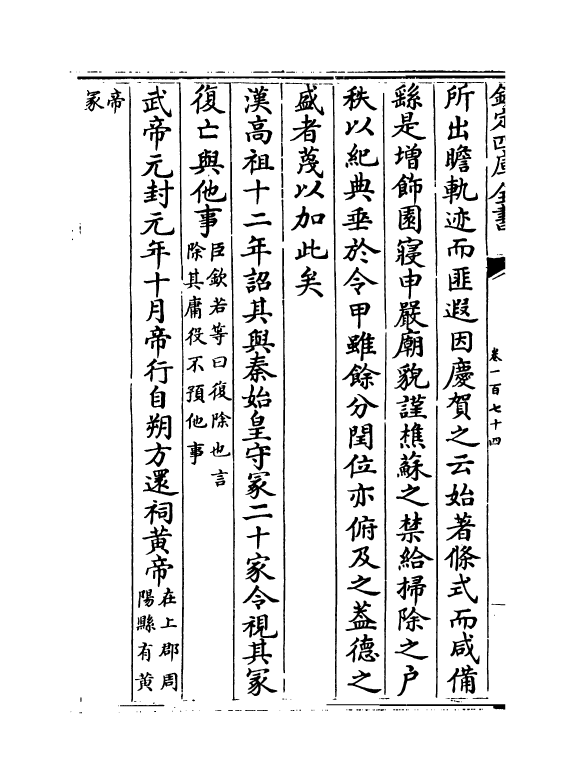 欽定四庫全書
卷一百七十四
所出瞻軌迹而匪遐因慶賀之云始著條式而咸備
繇是增飾園寢申嚴廟貌謹樵蘇之禁給掃除之户
秩以紀典垂於令甲雖餘分閏位亦俯及之葢德之
盛者蔑以加此矣
漢高祖十二年詔其與秦始皇守冢二十家令視其冢
復亡與他事臣欽若等曰復除也言除其庸役不預他事
武帝元封元年十月帝行自朔方還祠黄帝在上郡周陽縣有黄
帝冢